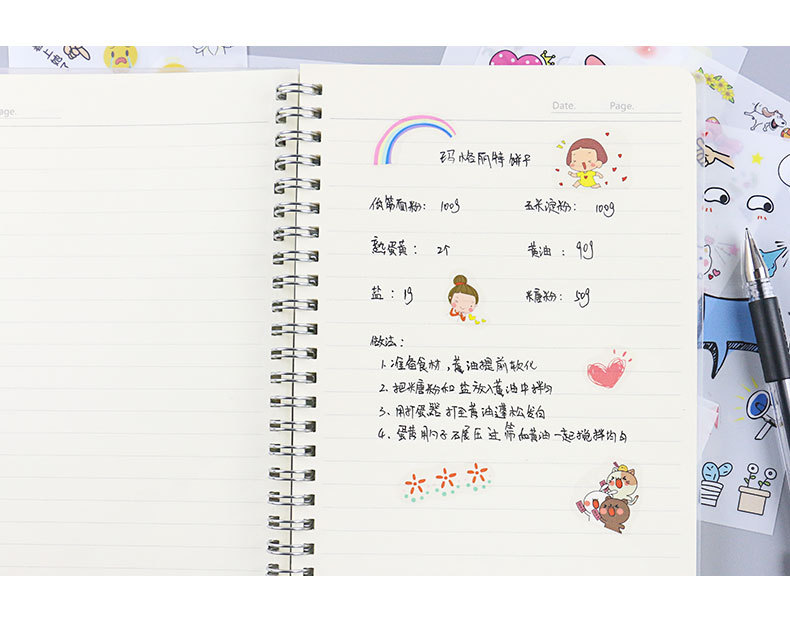 age.
Date. Page.
玛格丽特饼干
低筋面粉: 100g 玉米淀粉: 100g
熟蛋黄: 2个 黄油: 90g
盐: 1g 米唐粉: 50g
做法:
1、准备食材,黄油提前软化
2、把米唐粉和盐放入黄油中拌均
3、用打蛋器打至黄油蓬松发白
4、蛋黄用勺子碾压过筛和黄油一起搅拌均匀